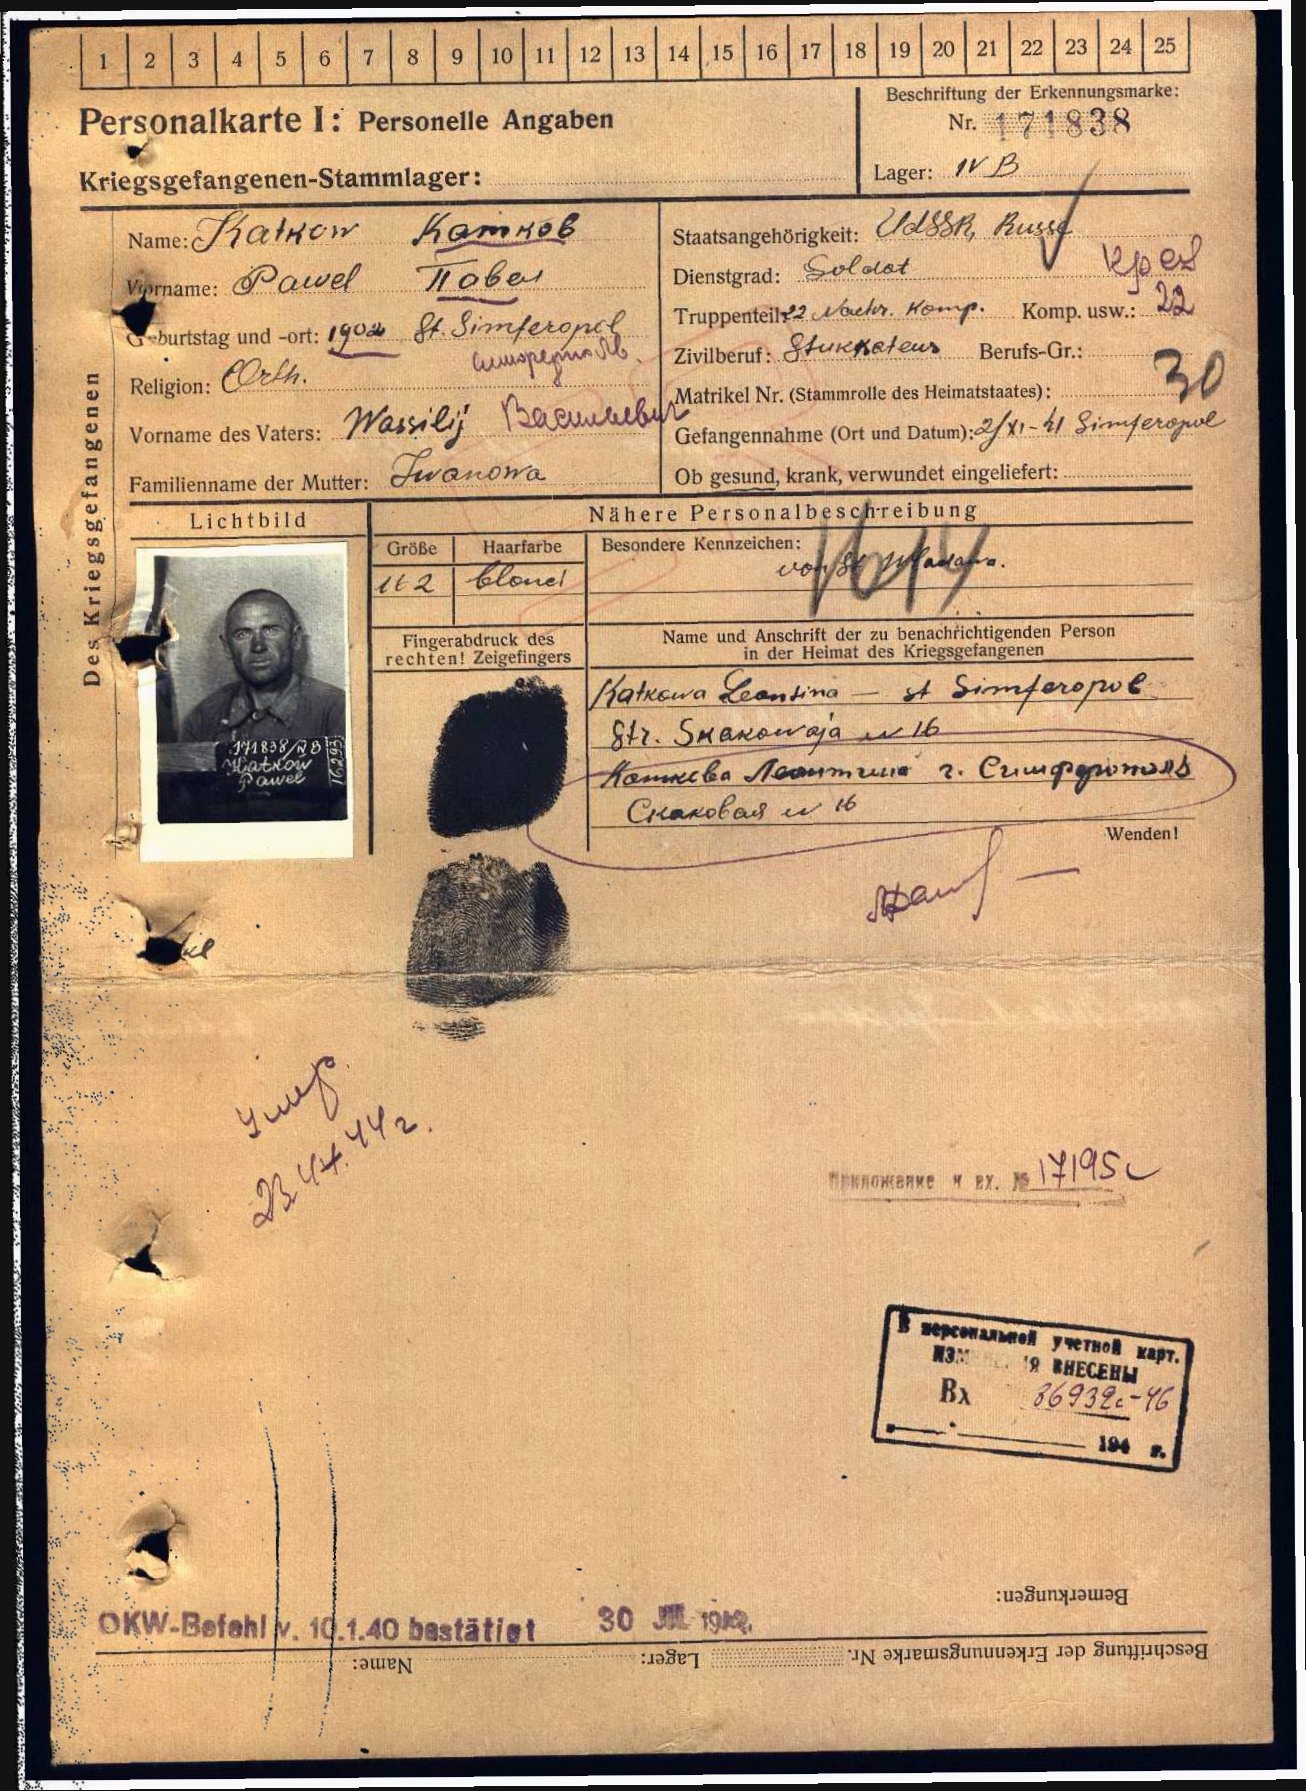 1 2 3 4 5 6 7 8 9 10 11 12 13 14 15 16 17 18 19 20 21 22 23 24 25
Personalkarte I: Personelle Angaben
Beschriftung der Erkennungsmarke:
Nr. 171838
Kriegsgefangenen-Stammlager:
Lager: IV B
Des Kriegsgefangenen
Name: Katkow Катков
Vorname: Pawel Павел
Geburtstag und -ort: 1902 St. Simferopol
Religion: Orth.
Vorname des Vaters: Wassilij Васильевич
Familienname der Mutter: Iwanowa
Staatsangehörigkeit: UdSSR, Russe
Dienstgrad: Soldat
Truppenteil: 22 Nachr. Komp. Komp. usw.: 22
Zivilberuf: Stukkateur Berufs-Gr.:
30
Matrikel Nr. (Stammrolle des Heimatstaates):
Gefangennahme (Ort und Datum): 2/XI-41 Simferopol
Ob gesund, krank, verwundet eingeliefert:
Lichtbild
Nähere Personalbeschreibung
Größe Haarfarbe Besondere Kennzeichen:
162 blond
Fingerabdruck des
rechten! Zeigefingers
Name und Anschrift der zu benachrichtigenden Person
in der Heimat des Kriegsgefangenen
Katkowa Leontina — st Simferopol
Str. Skakowaja N 16
Каткова Леонтина г. Симферополь
Скаковая N 16
Wenden!
171838/IVB
Katkow
Pawel
Умер
23.4.44 г.
Приложение к вх. № 17195с
В персональной учетной карт.
ИЗМЕНЕНИЯ ВНЕСЕНЫ
Вх 36939с-46
194 г.
Bemerkungen:
OKW-Befehl v. 10.1.40 bestätigt 30 JUL 1942
Beschriftung der Erkennungsmarke Nr. Lager: Name: